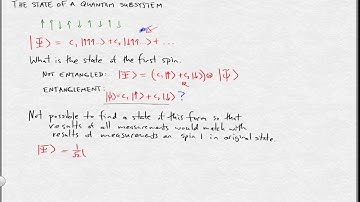 THE STATE OF A QUANTUM SUBSYSTEM
↑ ↑ ↓ ↓ ↑ ↓ ↓ ↑ ↓
|Ψ⟩ = c₁|↑↑↑...⟩ + c₂|↓↑↑...⟩ + ...
What is the state of the first spin.
NOT ENTANGLED: |Ψ⟩ = (c₁|↑⟩ + c₂|↓⟩) ⊗ |Ψ⟩
ENTANGLEMENT: |ψ⟩ = c₁|↑⟩ + c₂|↓⟩ ?
Not possible to find a state of this form so that
results of all measurements would match with
results of measurements on spin 1 in original state.
|Ψ⟩ = 1/√2 (